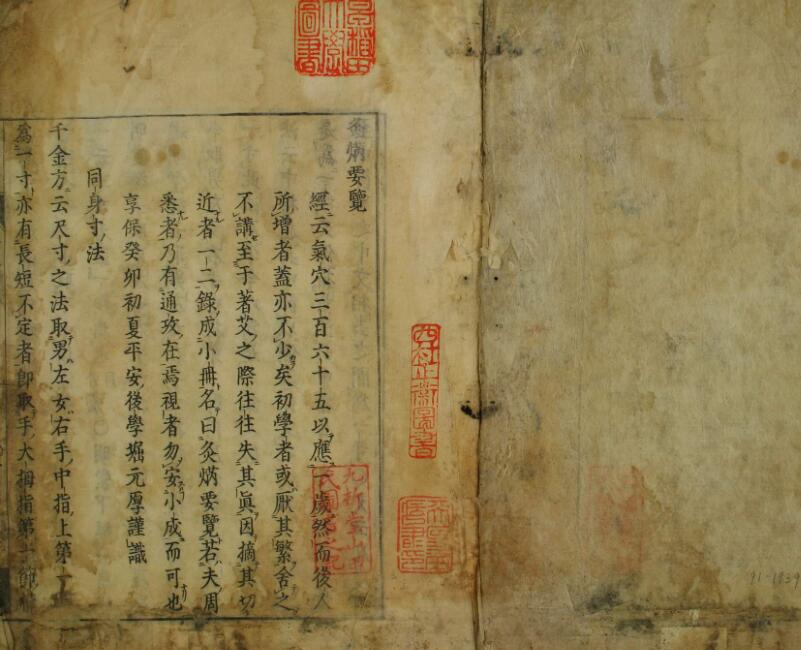 灸焫要覽
經云氣穴三百六十五以應一歲然而後人
所增者蓋亦不少矣初學者或厭其繁舍之
不講至于著艾之際往往失其眞因摘其切
近者一二錄成小冊名曰灸焫要覽若夫周
悉者乃有通攷在焉視者勿安小成而可也
享保癸卯初夏平安後學堀元厚謹識
同身寸法
千金方云尺寸之法取男左女右手中指上第一
爲一寸亦有長短不定者卽取手大拇指第一節
圖書
91-1839